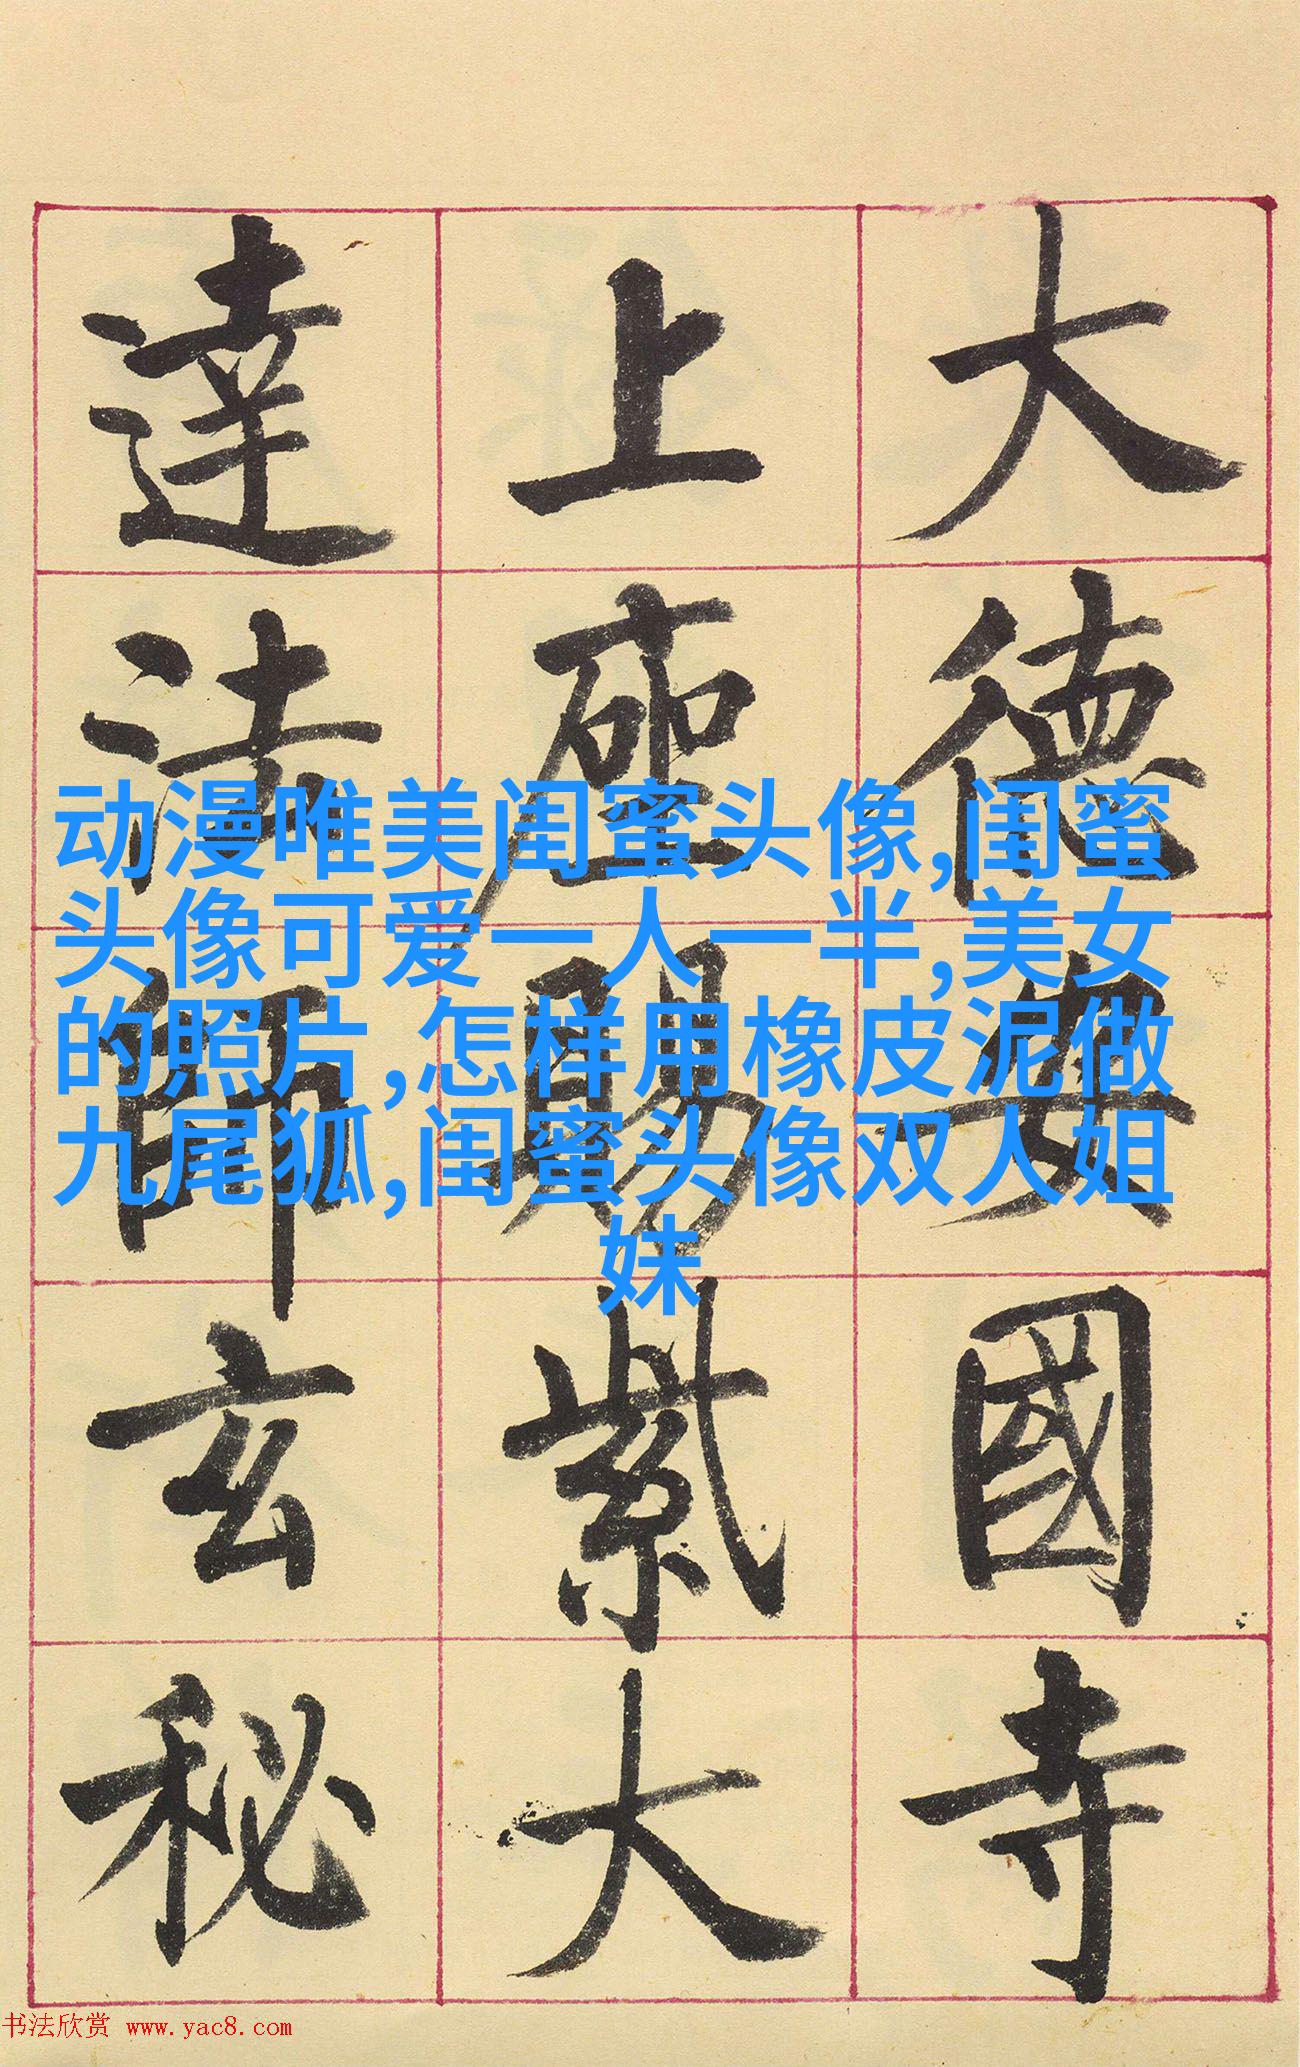 大德安國寺
上座賜紫大
達法師玄秘
动漫唯美闺蜜头像,闺蜜
头像可爱一人一半,美女
的照片,怎样用橡皮泥做
九尾狐,闺蜜头像双人姐
妹
书法欣赏 www.yac8.com